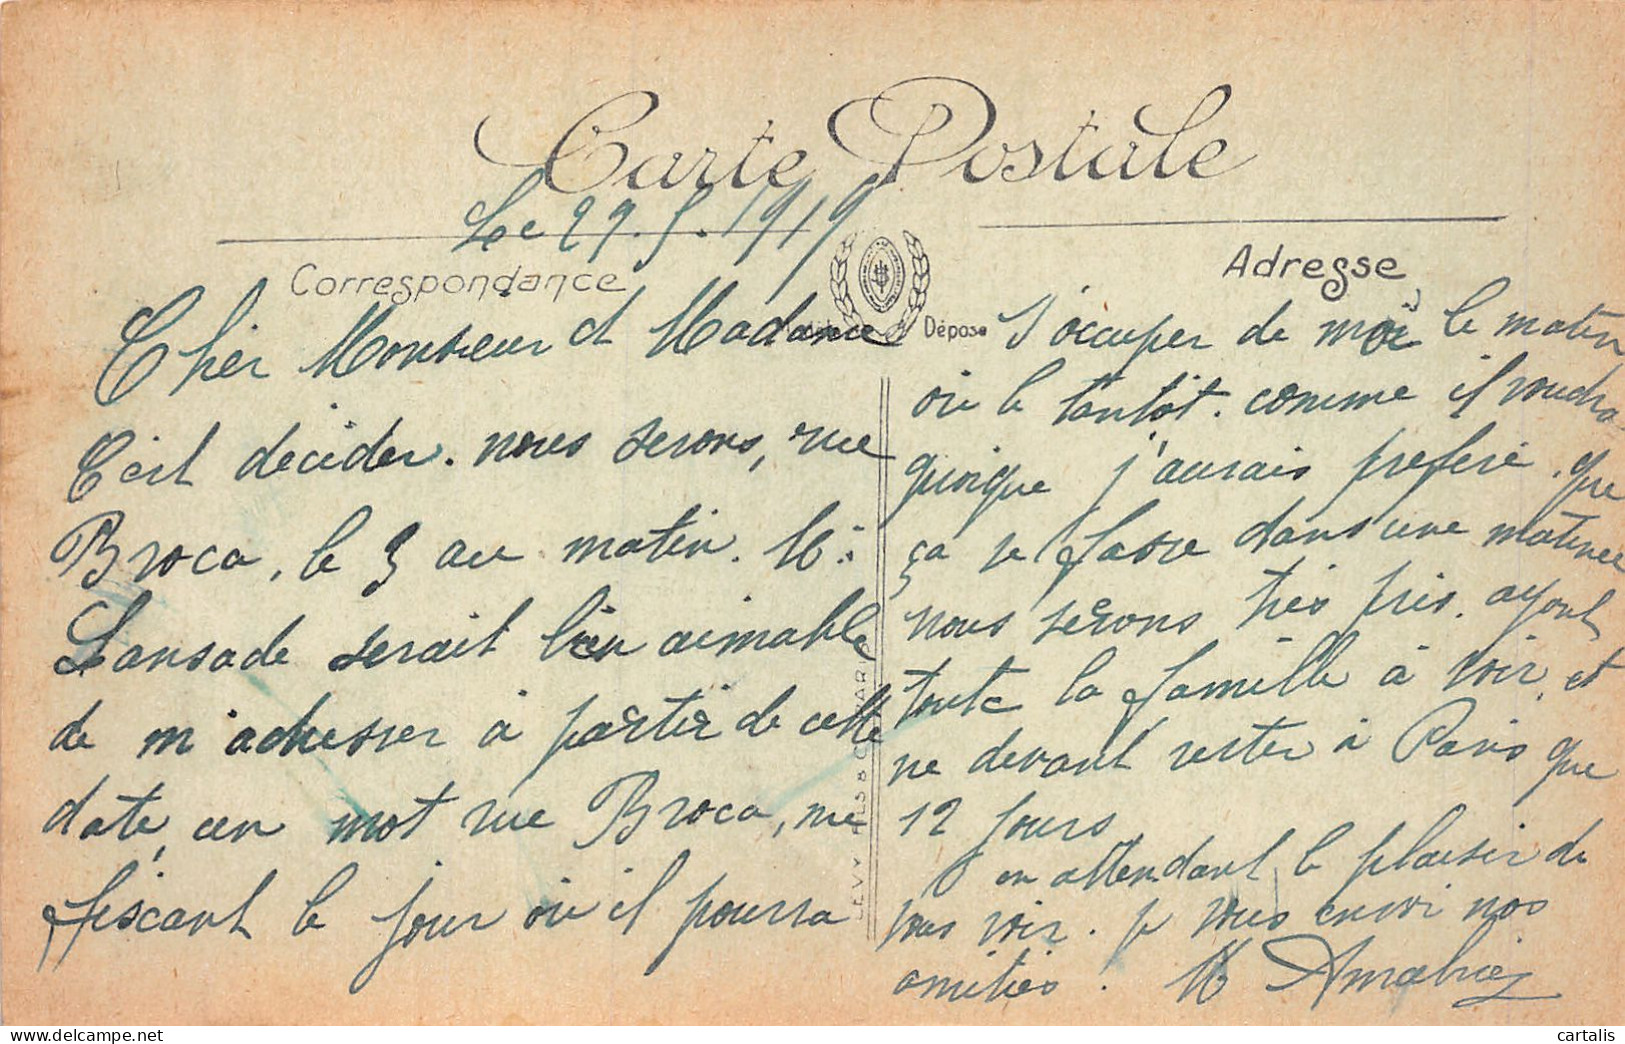 Carte Postale
Le 29.5.1919
Correspondance
Cher Monsieur et Madame
C'est decider. nous serons, rue
Broca, le 3 au matin. M.
Lansade serait bien aimable
de m'adresser à partir de cette
date, un mot rue Broca, me
fiscant le jour où il pourra
Déposé
Adresse
s'occuper de moi le matin
ou le tantôt. comme il voudra
quoique j'aurais preferé. que
ça se fasse dans une matinee
nous serons très pris. ayant
toute la famille à voir, et
ne devant rester à Paris que
12 jours
en attendant le plaisir de
vous voir. je vous envoi nos
amitiés. M
LEVY FILS & C° PARIS
cartalis